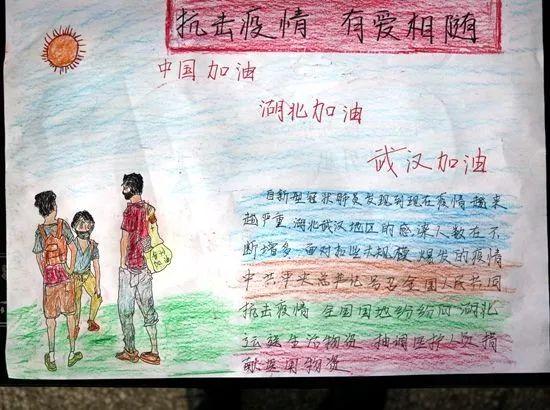 抗击疫情 有爱相随
中国加油
湖北加油
武汉加油
自新型冠状肺炎发现到现在疫情越来
越严重,湖北武汉地区的感染人数在不
断增多 面对如此大规模 爆发的疫情
中共中央总书记号召全国人民共同
抗击疫情 全国地纷纷向湖北
运输生活物资 抽调医护人员 捐
献医用物资
加油